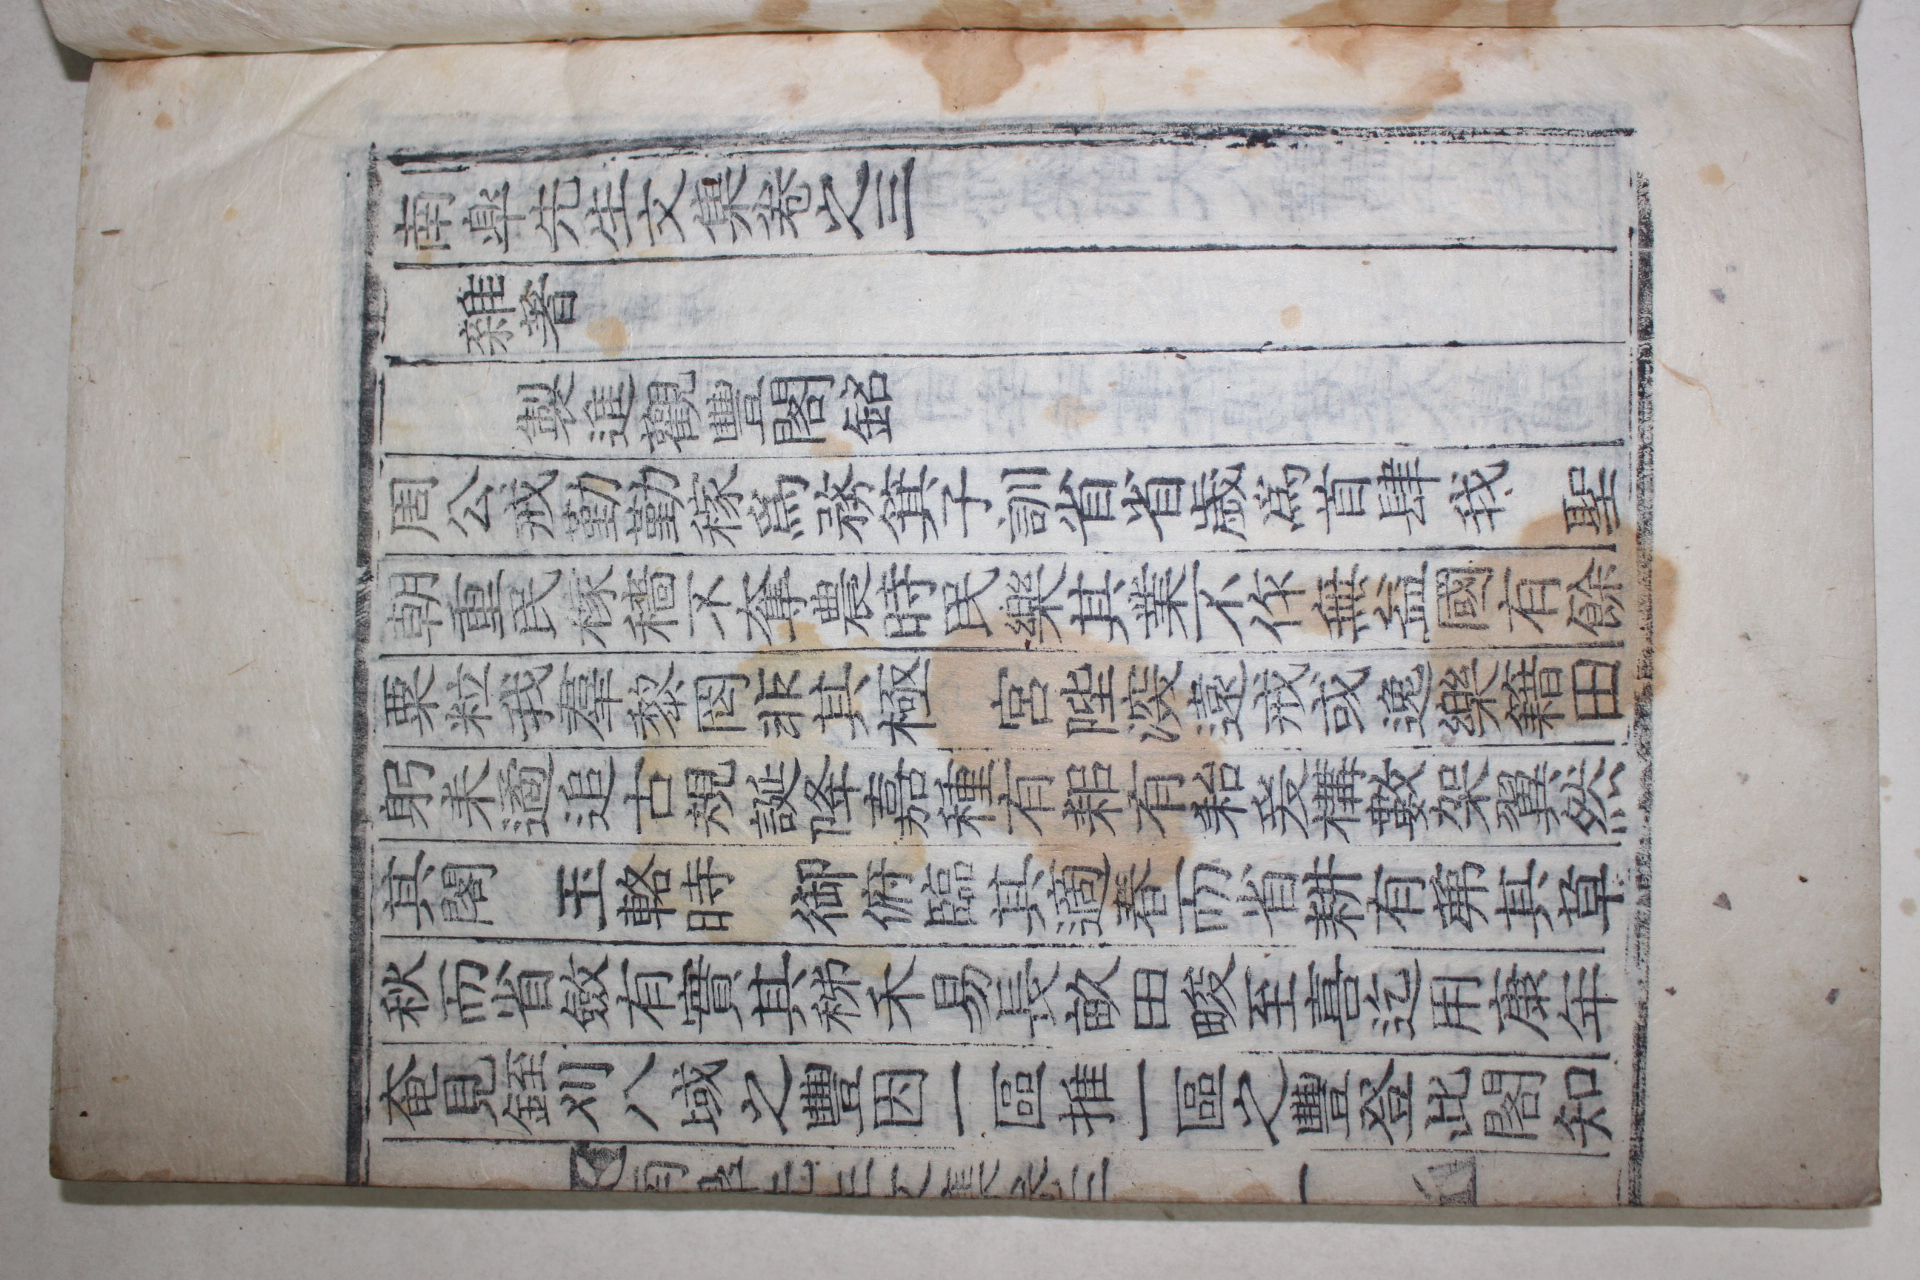 南皐先生文集卷之三
雜著
製進觀豐閣銘
周公戒勤勤稼爲務箕子訓省省歲爲首肆我 聖
朝重民稼穡不奪農時民樂其業不作無益國有餘
粟粒我羣黎罔非其極 宮陛深邃戒或逸樂籍田
躬耒遹追古規誕降嘉種有耡有耛爰構數架翼然
其閣 玉輅時 御俯臨其遹春而省耕有茀其草
秋而省斂有實其稊禾易長畝田畯至喜迄用康年
奄見銍刈八域之豐因一區推一區之豐登此閣知
南皐先生文集卷三 一